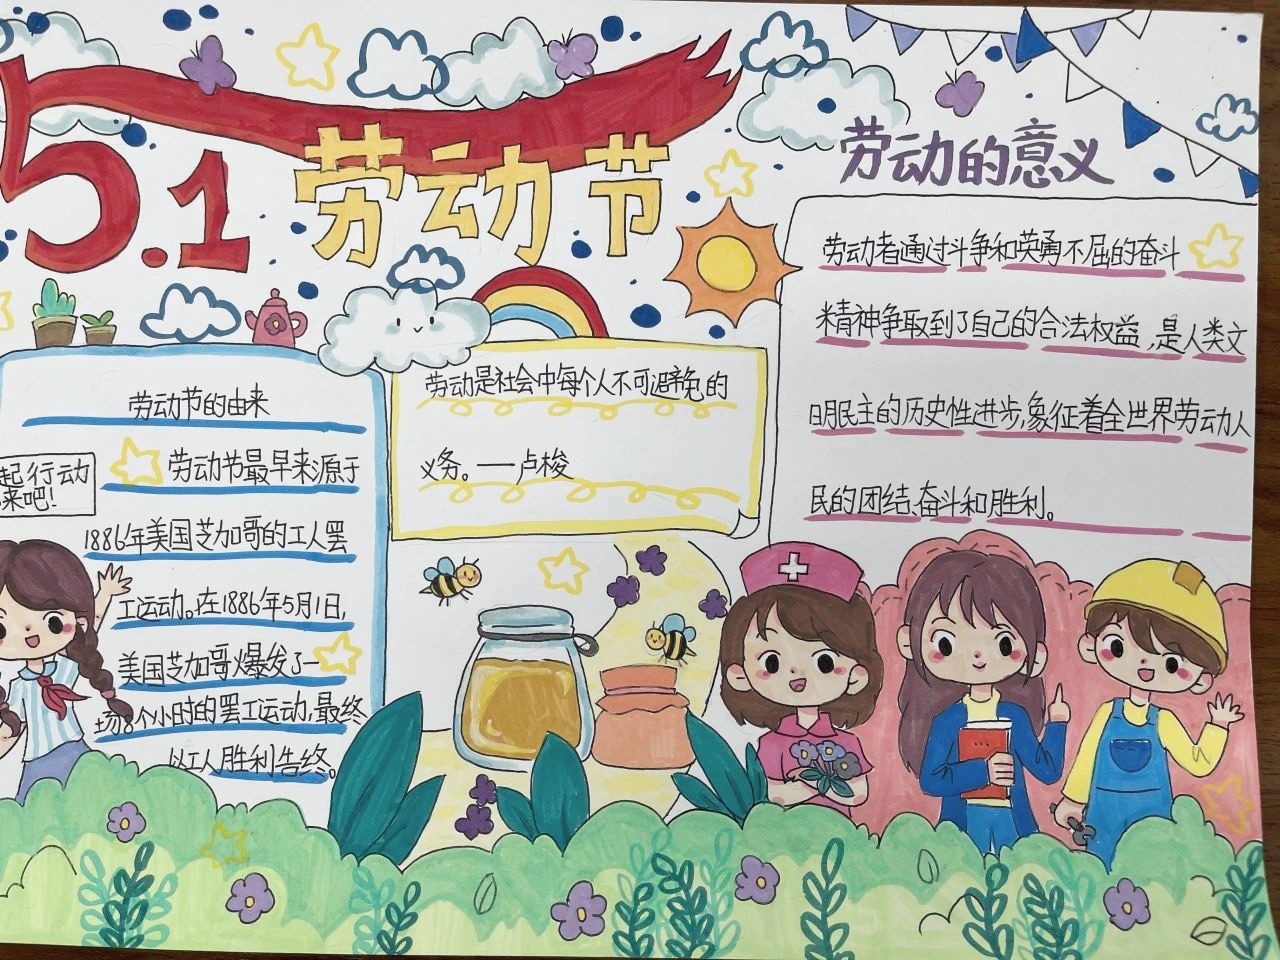 5.1 劳动节
劳动的意义
劳动者通过斗争和英勇不屈的奋斗
精神争取到了自己的合法权益,是人类文
明民主的历史性进步,象征着全世界劳动人
民的团结、奋斗和胜利。
劳动是社会中每个人不可避免的
义务。——卢梭
劳动节的由来
劳动节最早来源于
1886年美国芝加哥的工人罢
工运动。在1886年5月1日,
美国芝加哥爆发了一
场8个小时的罢工运动,最终
以工人胜利告终。
起行动
来吧!